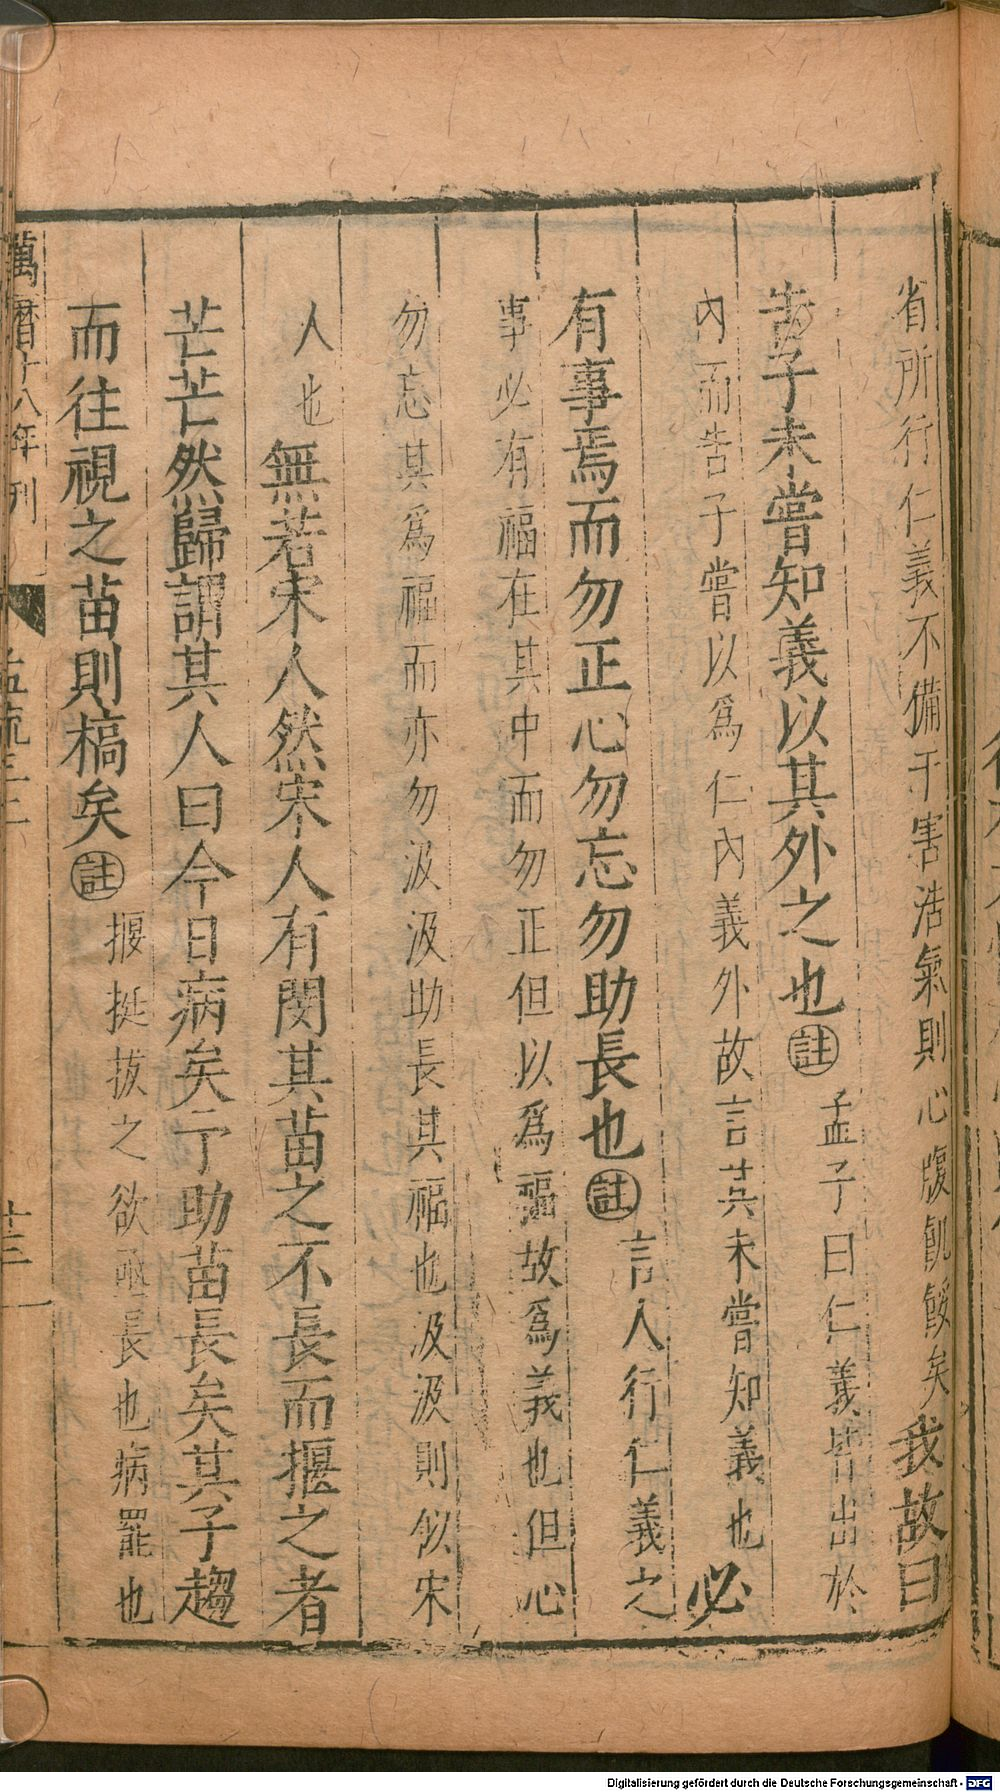 省所行仁義不備干害浩氣則心腹飢餒矣我故曰
告子未嘗知義以其外之也註孟子曰仁義皆出於
內而告子嘗以爲仁內義外故言其未嘗知義也必
有事焉而勿正心勿忘勿助長也註言人行仁義之
事必有福在其中而勿正但以爲福故爲義也但心
勿忘其爲福而亦勿汲汲助長其福也汲汲則似宋
人也無若宋人然宋人有閔其苗之不長而揠之者
芒芒然歸謂其人曰今日病矣予助苗長矣其子趨
而往視之苗則槁矣註揠挺拔之欲亟長也病罷也
萬曆十八年刊
孟疏三上
十三
Digitalisierung gefördert durch die Deutsche Forschungsgemeinschaft - DFG